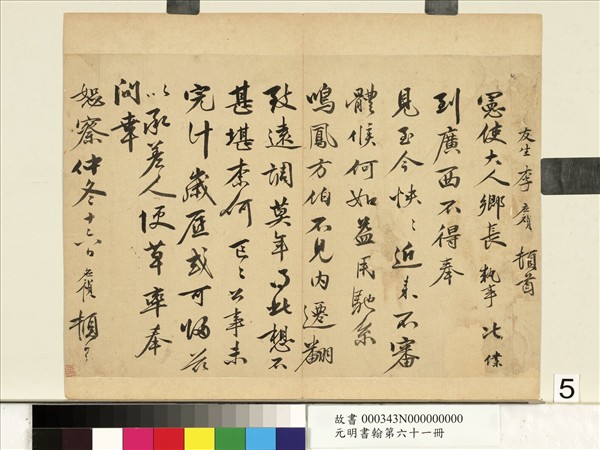 友生李應禎頓首
憲使大人鄉長執事比僕
到廣西不得奉
見至今怏〻近來不審
體候何如益用馳系
鳴鳳方伯不見內遷翻
致遠調莫年得此想不
甚堪柰何〻〻公事未
完計歲歷或可歸茲
以承差人便草率奉
問幸
恕察仲冬十六日應禎頓首
5
故書 000343N000000000
元明書翰第六十一冊